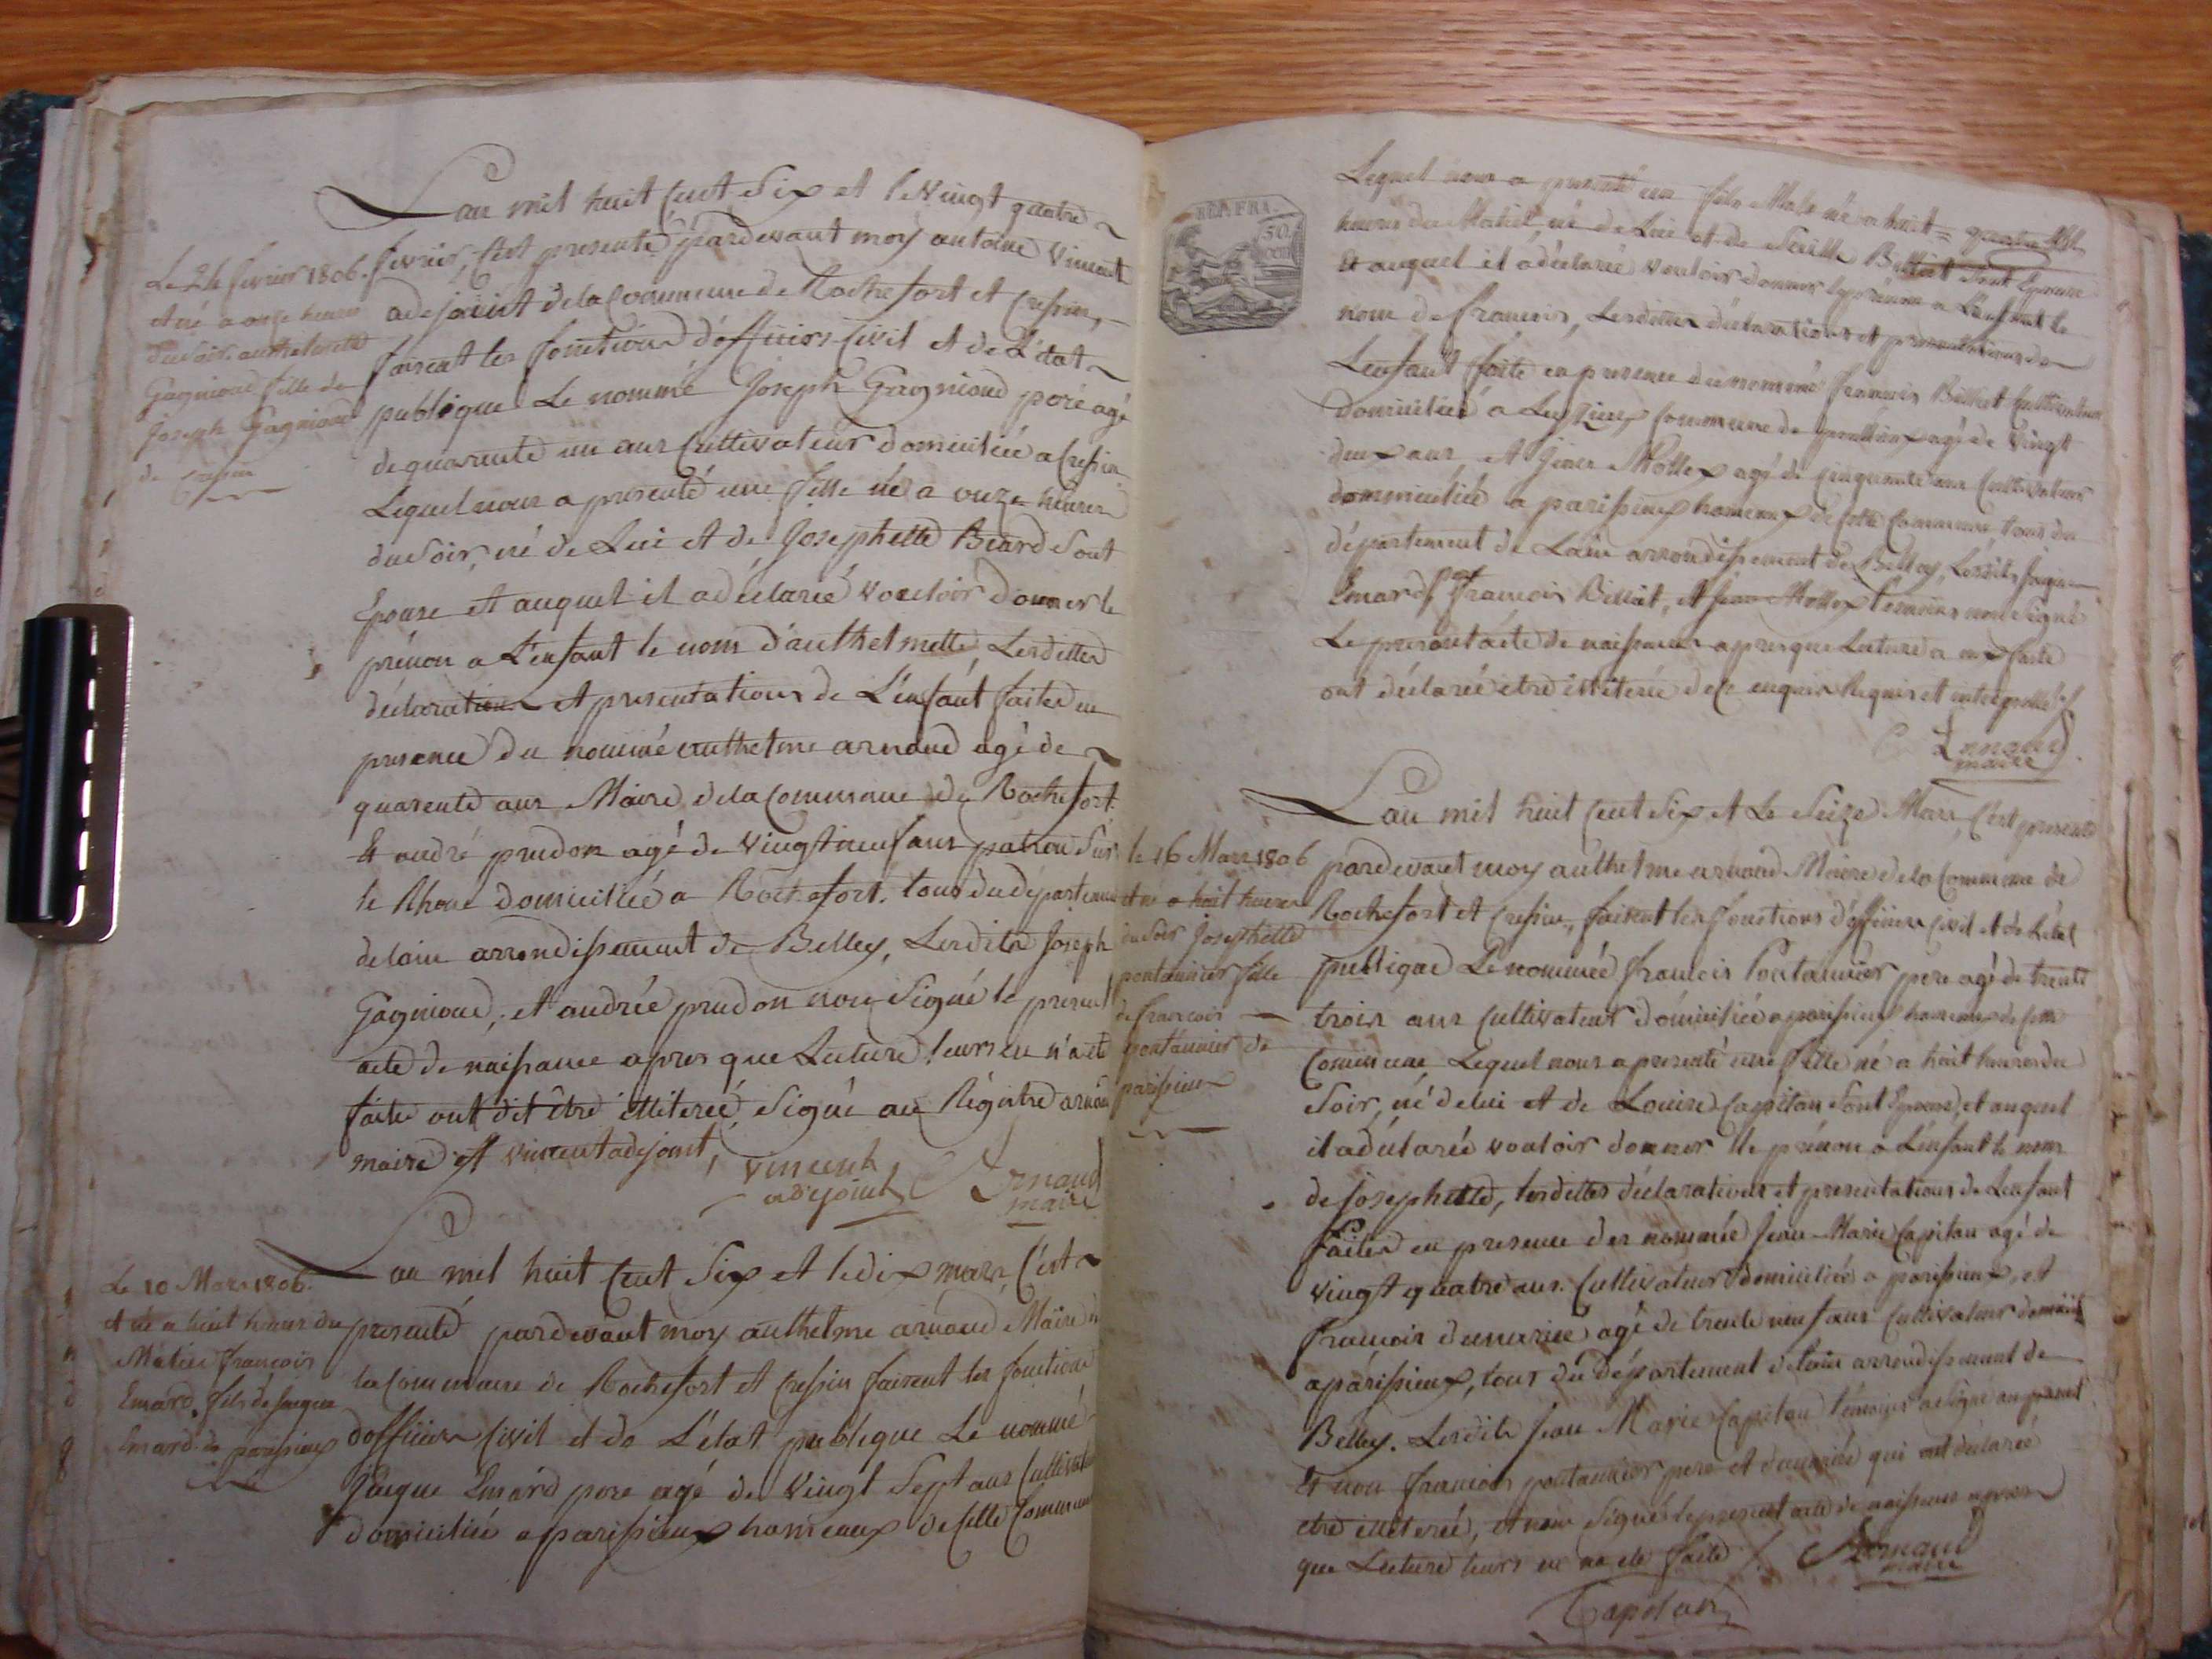 Lan mil huit Cent Six et le Vingt quatre
fevrier, c'est presenté pardevant moy antoine Vincent
adejoint de la Commune de Rochefort et Cressin,
faisent les fonctions d'officiers Civil et de L'état
publique Le nommé Joseph Gagnioud pere agé
de quarente un ans Cultivateur domicilié a Cressin
Lequel nous a presenté une fille né a onze heures
du Soir, né de Lui et de Josephette Beard Sont
Epouse et auquel il a déclaré vouloir donner le
prénon a L'enfant le nom d'authelmette, Lesdittes
déclarations et presentations de L'enfant faites en
presence du nommé authelme arnaud agé de
quarente ans Maire de la Commune de Rochefort.
Et andré prudon agé de Vingt neuf ans patron Sur
le Rhone domicilié a Rochefort. tous du departement
de lain arrondissement de Belley, Lesdits Joseph
Gagnioud, et andrée prudon non Signé le present
acte de naissance apres que Lecture leurs en n'a eté
faite ont dit être illiteré, Signé au Régistre arnaud
maire et vincent adejoint,
Vincent
adejoint
Arnaud
maire
Le 24 fevrier 1806.
et né a onze heures
du Soir authelmette
Gagnioud fille de
Joseph Gagnioud
de Cressin
Lan mil huit Cent Six et le dix mars, C'est
presenté pardevant moy authelme arnaud Maire de
la Commune de Rochefort et Cressin faisent les fonctions
d'officiers Civil et de L'état publique Le nommé
Jaque Emard pere agé de Vingt Sept ans Cultivateur
domicilié a parissieux hameaux de Cette Commune
Le 10 Mars 1806.
et né a huit heures du
Matin francois
Emard, fils de Jaque
Emard de parissieux
REP. FRA.
50
Lequel nous a presenté un fils Male né a huit
heures du Matin, né de Lui et de Billiet Sont Epouse
Et auquel il a déclaré vouloir donner le prénon a L'enfant le
nom de francois, Lesdittes déclarations et presentations de
L'enfant faite en presence du nommé francois Billiet Cultivateur
Domicilié a Commune de agé de Vingt
deux ans et Jean Mollex agé de Cinquante ans Cultivateur
dommicilié a parissieux hameaux de Cette Commune, tous du
département de Lain arrondissement de Belley, Lesdits Jaque
Emard, francois Billiet, et Jean Mollex temoins non Signé
Le present acte de naissance apres que Lecture a eux faite
ont déclaré etre illiteré de ce enquis Requis et interpellé
Arnaud
maire
Lan mil huit Cent Six et Le Seize Mars, C'est presenté
pardevant moy authelme arnaud Maire de la Commune de
Rochefort et Cressin, faisent les fonctions d'officiers Civil et de L'état
publique Le nommée francois Pontannier pere agé de trente
trois ans Cultivateur domicilié a parissieux hameaux de Cette
Commune Lequel nous a presenté une fille né a huit heures du
Soir, né de lui et de Louise Capitan Sont Epouse, et auquel
il a déclaré vouloir donner le prénon a L'enfant le nom
de Josephette, lesdittes déclarations et presentations de Lenfant
faites en presence des nommée Jean-Marie Capitan agé de
vingt quatre ans. Cultivateur domicilié a parissieux, et
francois dumarié agé de trente neuf ans Cultivateur
a parissieux, tous du département de lain arrondissement de
Belley. Lesdits Jean Marie Capitan temoins a Signé au present
Et non francois pontannier pere et dumarié qui ont déclaré
etre illiteré, et non Signé le present acte de naissance apres
que Lecture leurs en na ete faite
Arnaud
maire
Capitan
le 16 Mars 1806
et né a huit heures
du Soir Josephette
pontannier fille
de francois
pontannier de
parissieux